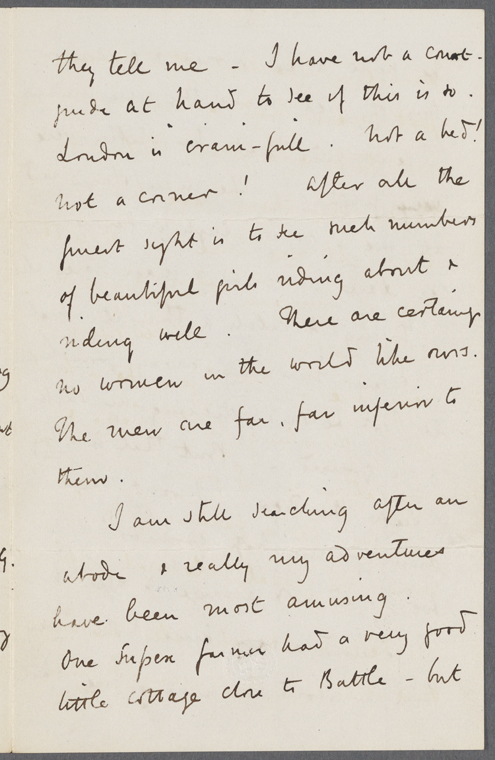 they tell me - I have not a court-
guide at hand to see if this is so.
London is cram-full. Not a bed!
not a corner! After all the
finest sight is to see such numbers
of beautiful girls riding about &
riding well. There are certainly
no women in the world like ours.
The men are far, far inferior to
them.
I am still searching after an
abode & really my adventures
have been most amusing.
One Sussex farmer had a very good
little cottage close to Battle - but